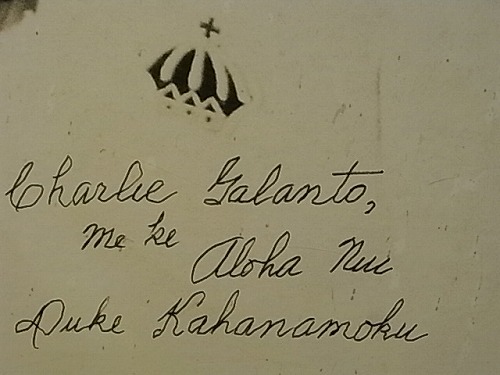 Charlie Galanto,
me ke
Aloha Nui
Duke Kahanamoku